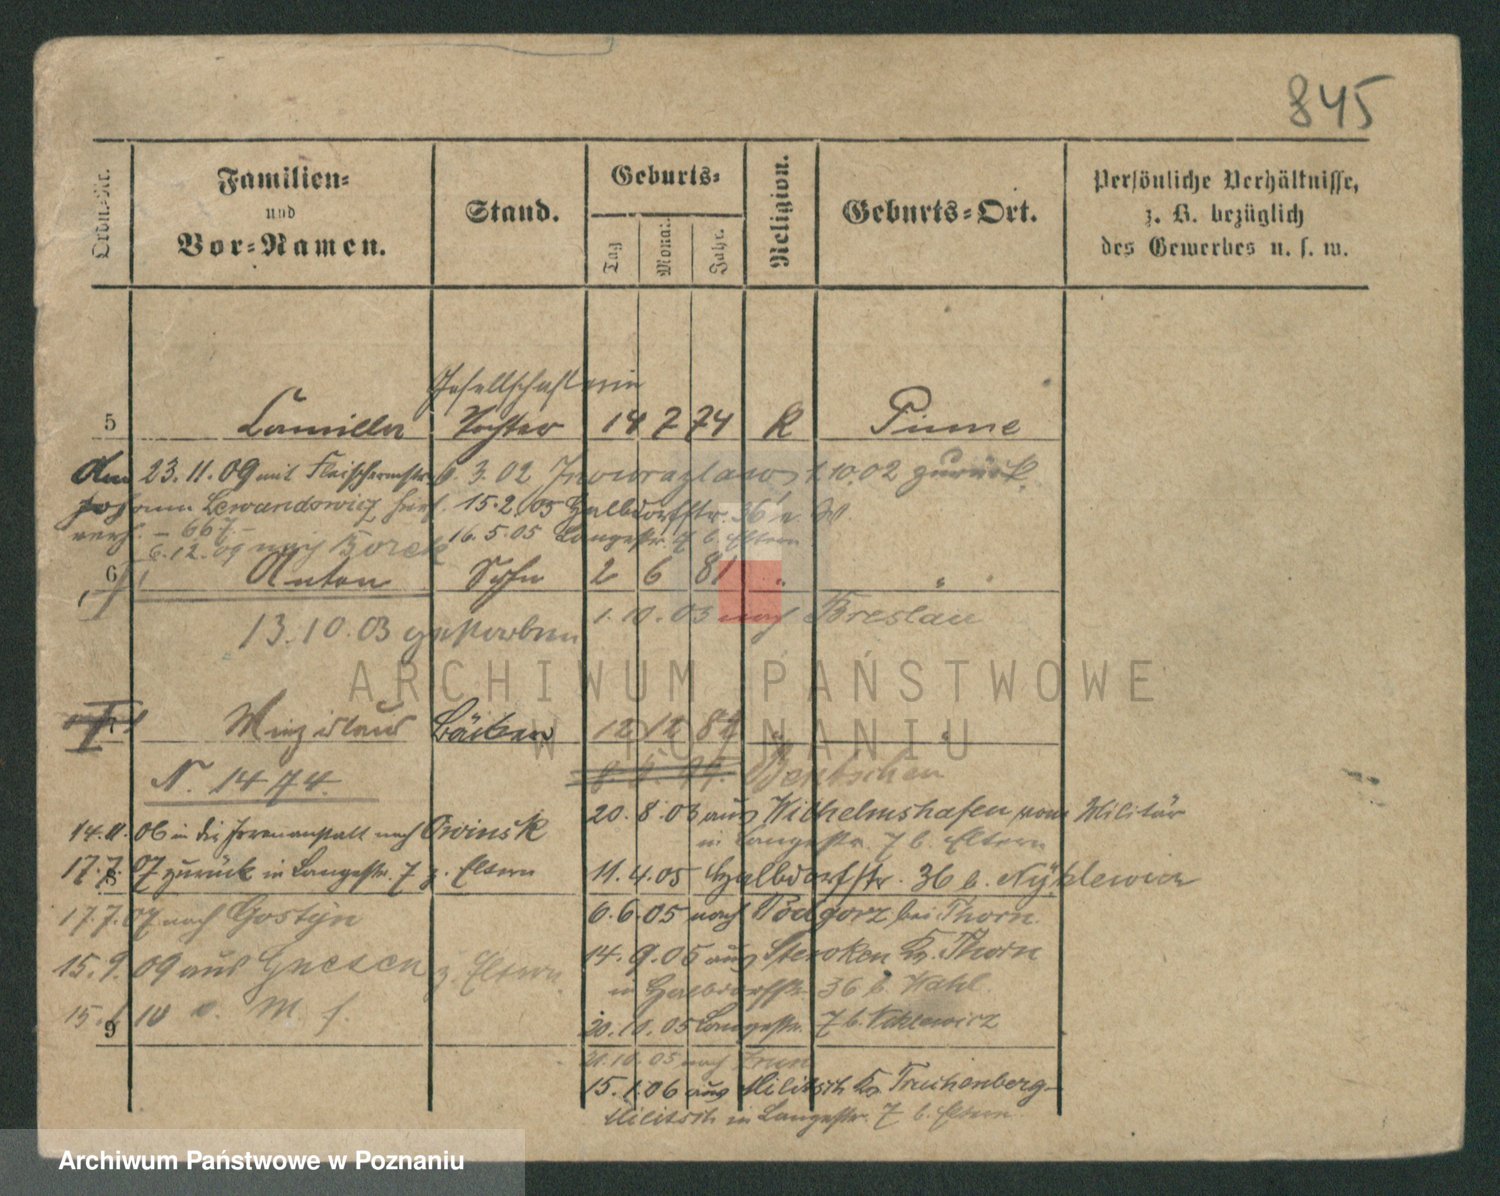 845
Ordn.-Nr.
Familien-
und
Vor-Namen.
Stand.
Geburts-
Tag
Monat
Jahr.
Religion.
Geburts-Ort.
Persönliche Verhältnisse,
z. B. bezüglich
des Gewerbes u. s. w.
Gesellschafterin
5 Camilla Tochter 14 7 74 K Pinne
Am 23.11.09 mit Fleischermstr. 3.02 Inowrazlaw, 1.10.02 zurück.
Johann Lewandowicz 15.2.05 Halbdorfstr. 36
verh. – 667 – 16.5.05 Langestr. 7 b. Eltern
6.12.09 nach Borek
6 Anton Sohn 2 6 81 " "
1.10.03 nach Breslau
13.10.03 gestorben
ARCHIWUM PAŃSTWOWE
W POZNANIU
Miezislaus Bäcker 12 12 84 " "
N. 1474. Bentschen
20.8.03 aus Wilhelmshafen vom Militär
in Langestr. 7 b. Eltern
14.11.06 in die Irrenanstalt nach Owinsk
17.7.07 zurück in Langestr. 7 z. Eltern
8
11.4.05 Halbdorfstr. 36 b.
17.7.07 nach Gostyn
6.6.05 nach Podgorz bei Thorn.
14.9.05 aus Thorn
15.9.09 aus Gnesen z. Eltern.
in Halbdorfstr. 36 b.
9
20.10.05 Langestr. 7 b.
21.10.05 nach
15.1.06 aus Militsch Trachenberg-
Militsch in Langestr. 7 b. Eltern
Archiwum Państwowe w Poznaniu